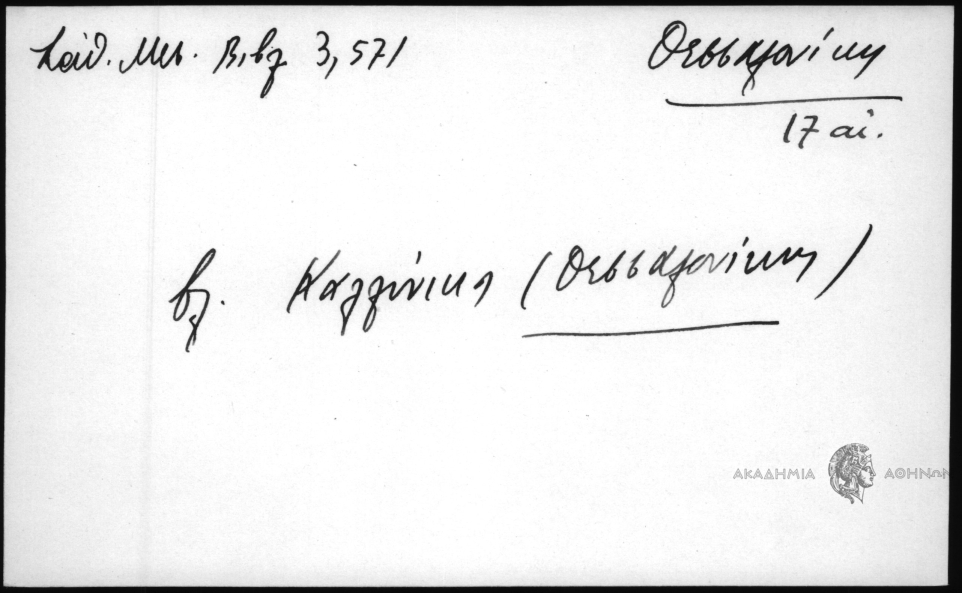 Σάθ. Μεσ. Βιβλ 3, 571
Θεσσαλονίκη
17 αἰ.
βλ. Καλλίνικη (Θεσσαλονίκη)
ΑΚΑΔΗΜΙΑ ΑΘΗΝΩΝ